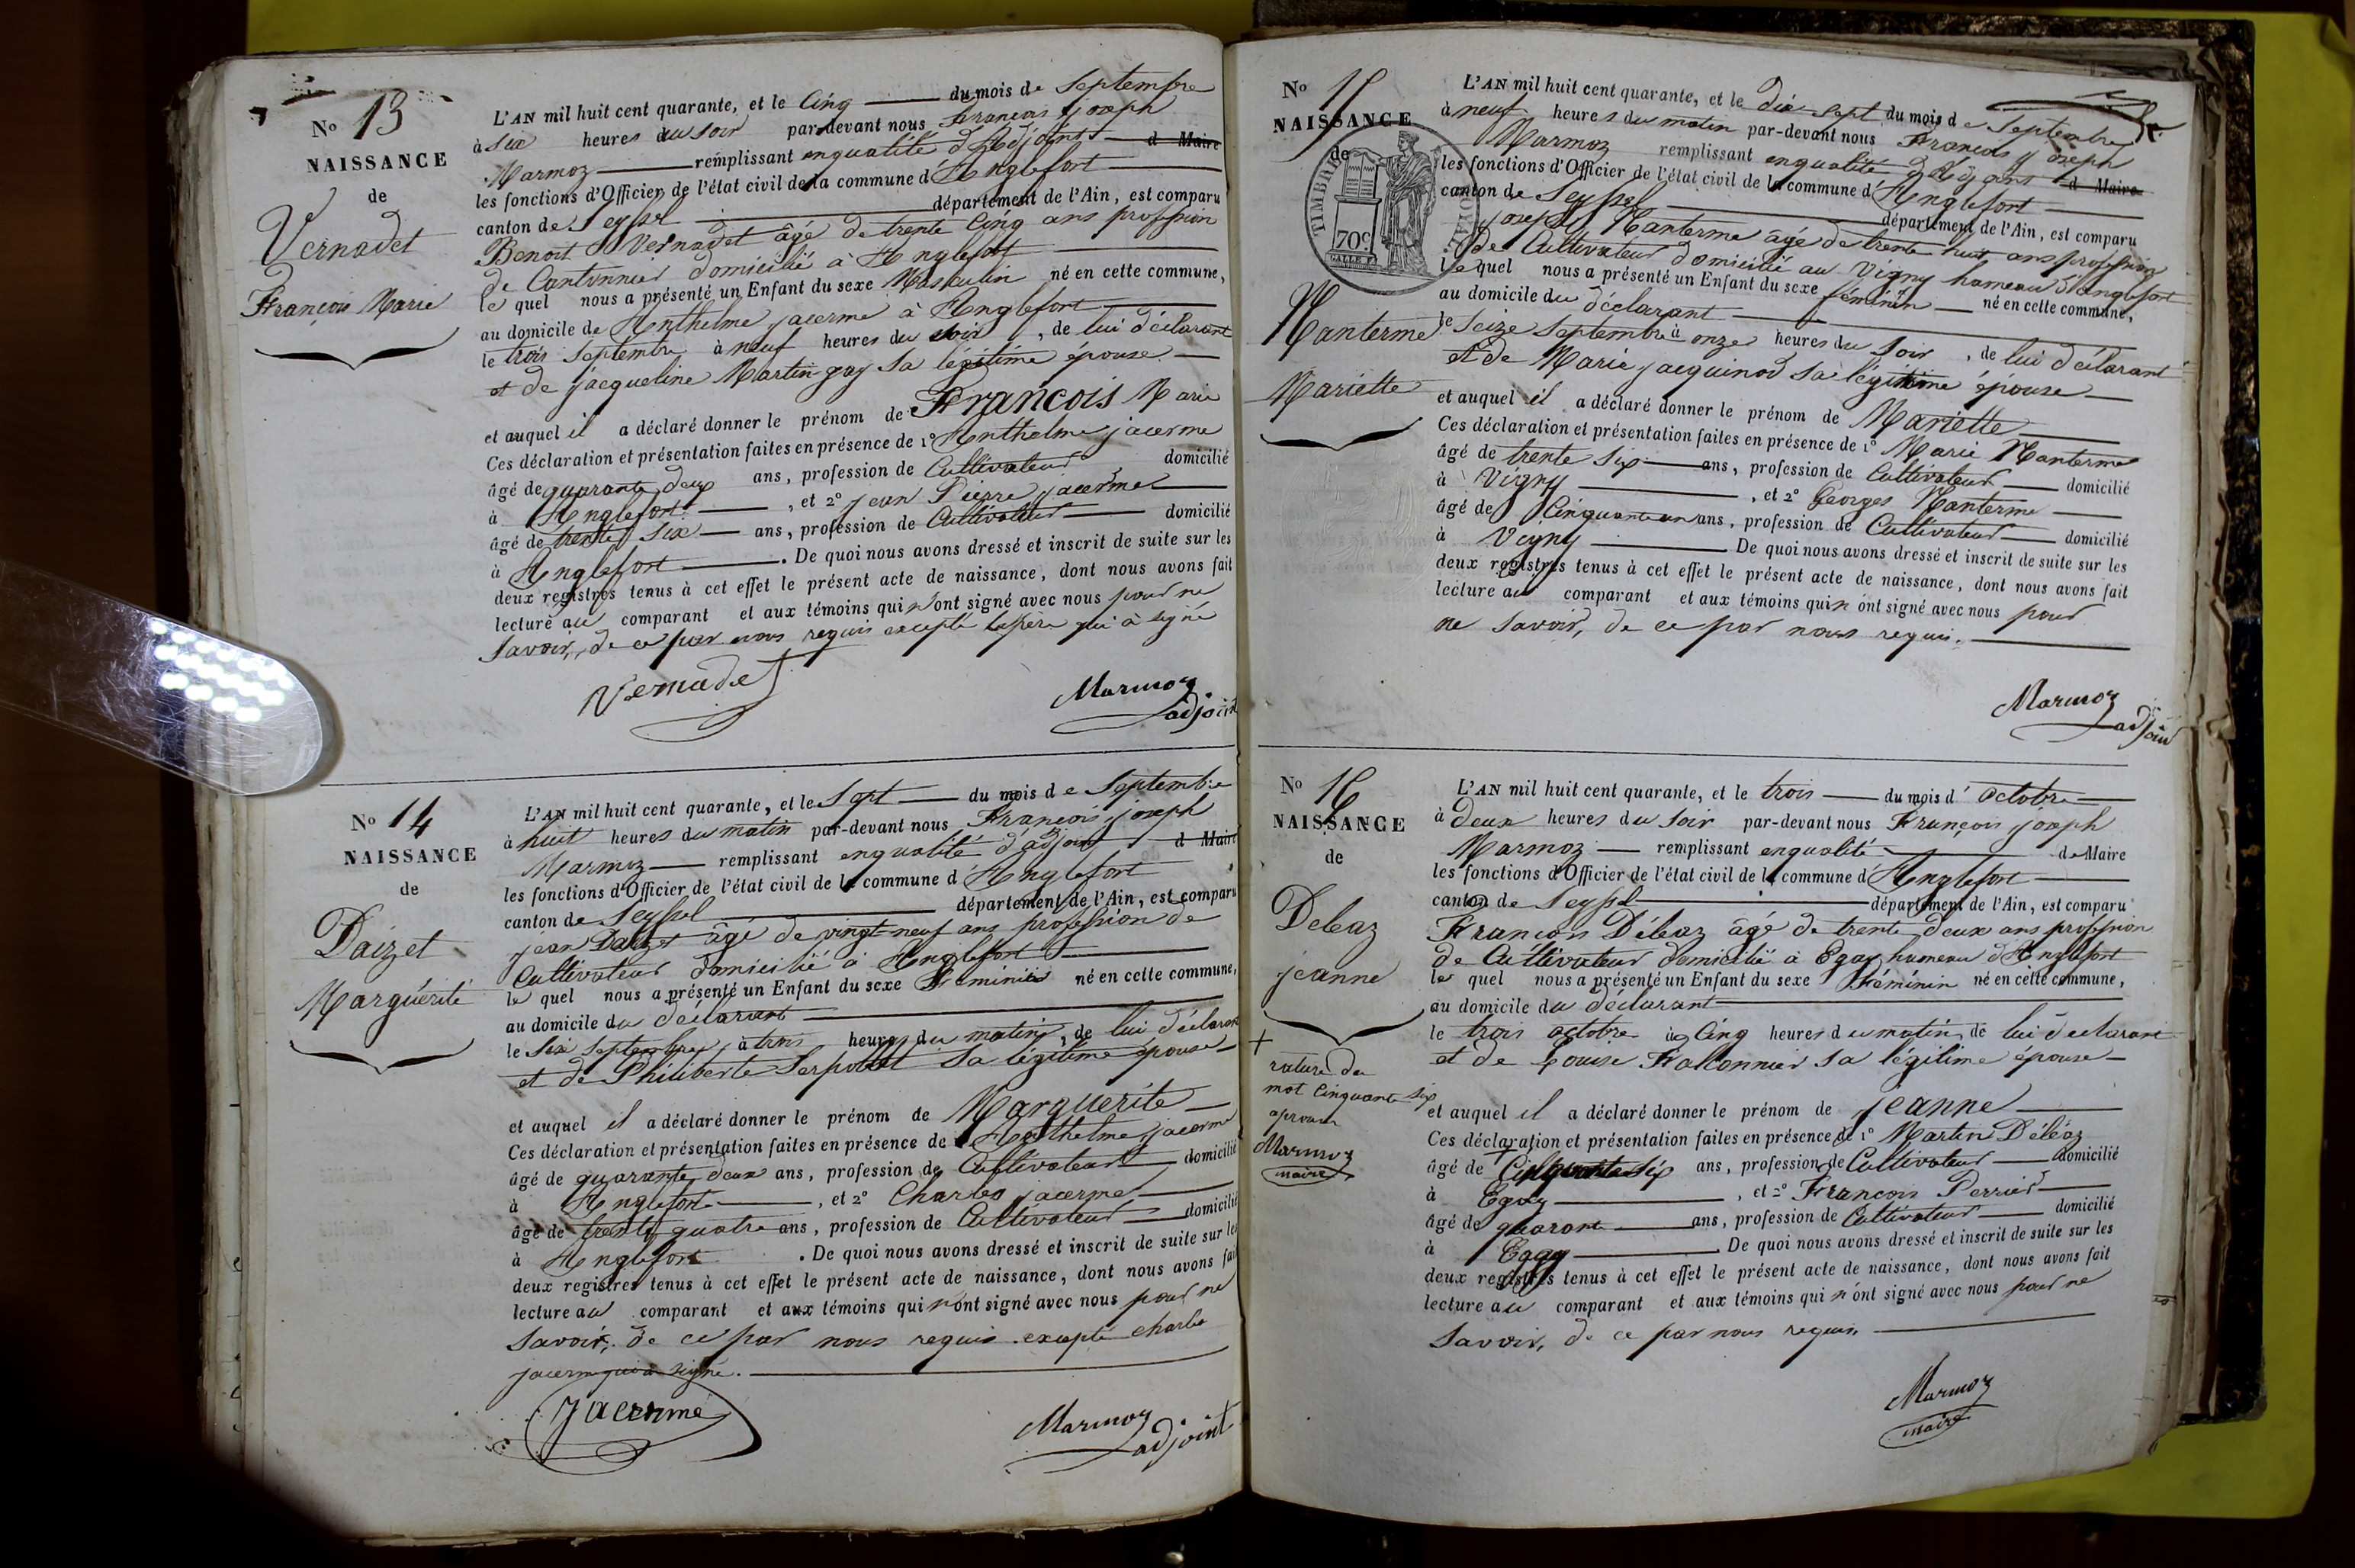 No 13
NAISSANCE
de
Vernadet
François Marie
L'AN mil huit cent quarante, et le Cinq du mois de Septembre
à six heures du soir par-devant nous François joseph
Marmoz remplissant enqualité d'Adjoint d Maire
les fonctions d'Officier de l'état civil de la commune d'Anglefort
canton de Seyssel département de l'Ain, est comparu
Benoit Vernadet âgé de trente Cinq ans profession
de Cantonnier domicilié à Anglefort
le quel nous a présenté un Enfant du sexe Masculin né en cette commune,
au domicile de Anthelme jacerme à Anglefort
le trois Septembre à neuf heures du soir, de lui déclarant
et de jacqueline Martin gay sa légitime épouse
et auquel il a déclaré donner le prénom de François Marie
Ces déclaration et présentation faites en présence de 1º Anthelme jacerme
âgé de quarante deux ans, profession de Cultivateur domicilié
à Anglefort, et 2º jean Pierre jacerme
âgé de trente six ans, profession de Cultivateur domicilié
à Anglefort. De quoi nous avons dressé et inscrit de suite sur les
deux registres tenus à cet effet le présent acte de naissance, dont nous avons fait
lecture au comparant et aux témoins qui n'ont signé avec nous pour ne
Savoir, de ce par nous requis excepté le père qui à signé
Vernadet
Marmoz
adjoint
No 14
NAISSANCE
de
Daizet
Marguérite
L'AN mil huit cent quarante, et le Sept du mois de Septembre
à huit heures du matin par-devant nous François joseph
Marmoz remplissant enqualité d'adjoint d Maire
les fonctions d'Officier de l'état civil de la commune d Anglefort
canton de Seyssel département de l'Ain, est comparu
jean Daizet âgé de vingt-neuf ans profession de
Cultivateur domicilié à Anglefort
le quel nous a présenté un Enfant du sexe Féminin né en cette commune,
au domicile du déclarant
le Six Septembre à trois heures du matin, de lui déclarant
et de Philiberte Serpollet sa légitime épouse
et auquel il a déclaré donner le prénom de Marguerite
Ces déclaration et présentation faites en présence de 1º Anthelme jacerme
âgé de quarante deux ans, profession de Cultivateur domicilié
à Anglefort, et 2º Charles jacerme
âgé de trente quatre ans, profession de Cultivateur domicilié
à Anglefort. De quoi nous avons dressé et inscrit de suite sur les
deux registres tenus à cet effet le présent acte de naissance, dont nous avons fait
lecture au comparant et aux témoins qui n'ont signé avec nous pour ne
Savoir, de ce par nous requis excepté charles
jacerme qui à signé.
Jacerme
Marmoz
adjoint
No 15
NAISSANCE
de
TIMBRE ROYAL
70c
Manterme
Mariette
L'AN mil huit cent quarante, et le dix sept du mois de Septembre
à neuf heures du matin par-devant nous François joseph
Marmoz remplissant enqualité d'Adjoint d Maire
les fonctions d'Officier de l'état civil de la commune d'Anglefort
canton de Seyssel département de l'Ain, est comparu
joseph Manterme âgé de trente huit ans profession
de Cultivateur domicilié au Vigny hameau d'anglefort
le quel nous a présenté un Enfant du sexe féminin né en cette commune,
au domicile du déclarant
le Seize Septembre à onze heures du Soir, de lui déclarant
et de Marie jacquinod sa légitime épouse
et auquel il a déclaré donner le prénom de Mariette
Ces déclaration et présentation faites en présence de 1º Marie Manterme
âgé de trente six ans, profession de Cultivateur domicilié
à Vigny, et 2º Georges Manterme
âgé de Cinquante un ans, profession de Cultivateur domicilié
à Vigny De quoi nous avons dressé et inscrit de suite sur les
deux registres tenus à cet effet le présent acte de naissance, dont nous avons fait
lecture au comparant et aux témoins qui n'ont signé avec nous pour
ne Savoir, de ce par nous requis.
Marmoz
adjoint
No 16
NAISSANCE
de
Deleaz
jeanne
rature du
mot Cinquante Six
aprouvé
Marmoz
maire
L'AN mil huit cent quarante, et le trois du mois d'Octobre
à deux heures du Soir par-devant nous François joseph
Marmoz remplissant enqualité de Maire
les fonctions d'Officier de l'état civil de la commune d'Anglefort
canton de Seyssel département de l'Ain, est comparu
François Déléaz âgé de trente deux ans profession
de Cultivateur domicilié à Egay hameau d'Anglefort
le quel nous a présenté un Enfant du sexe Féminin né en cette commune,
au domicile du déclarant
le trois octobre à Cinq heures du matin, de lui déclarant
et de Louise Falconnier sa légitime épouse
et auquel il a déclaré donner le prénom de jeanne
Ces déclaration et présentation faites en présence de 1º Martin Déléaz
âgé de Cinquante Six ans, profession de Cultivateur domicilié
à Egay, et 2º François Perrier
âgé de quarante ans, profession de Cultivateur domicilié
à Egay. De quoi nous avons dressé et inscrit de suite sur les
deux registres tenus à cet effet le présent acte de naissance, dont nous avons fait
lecture au comparant et aux témoins qui n'ont signé avec nous pour ne
Savoir, de ce par nous requis
Marmoz
maire